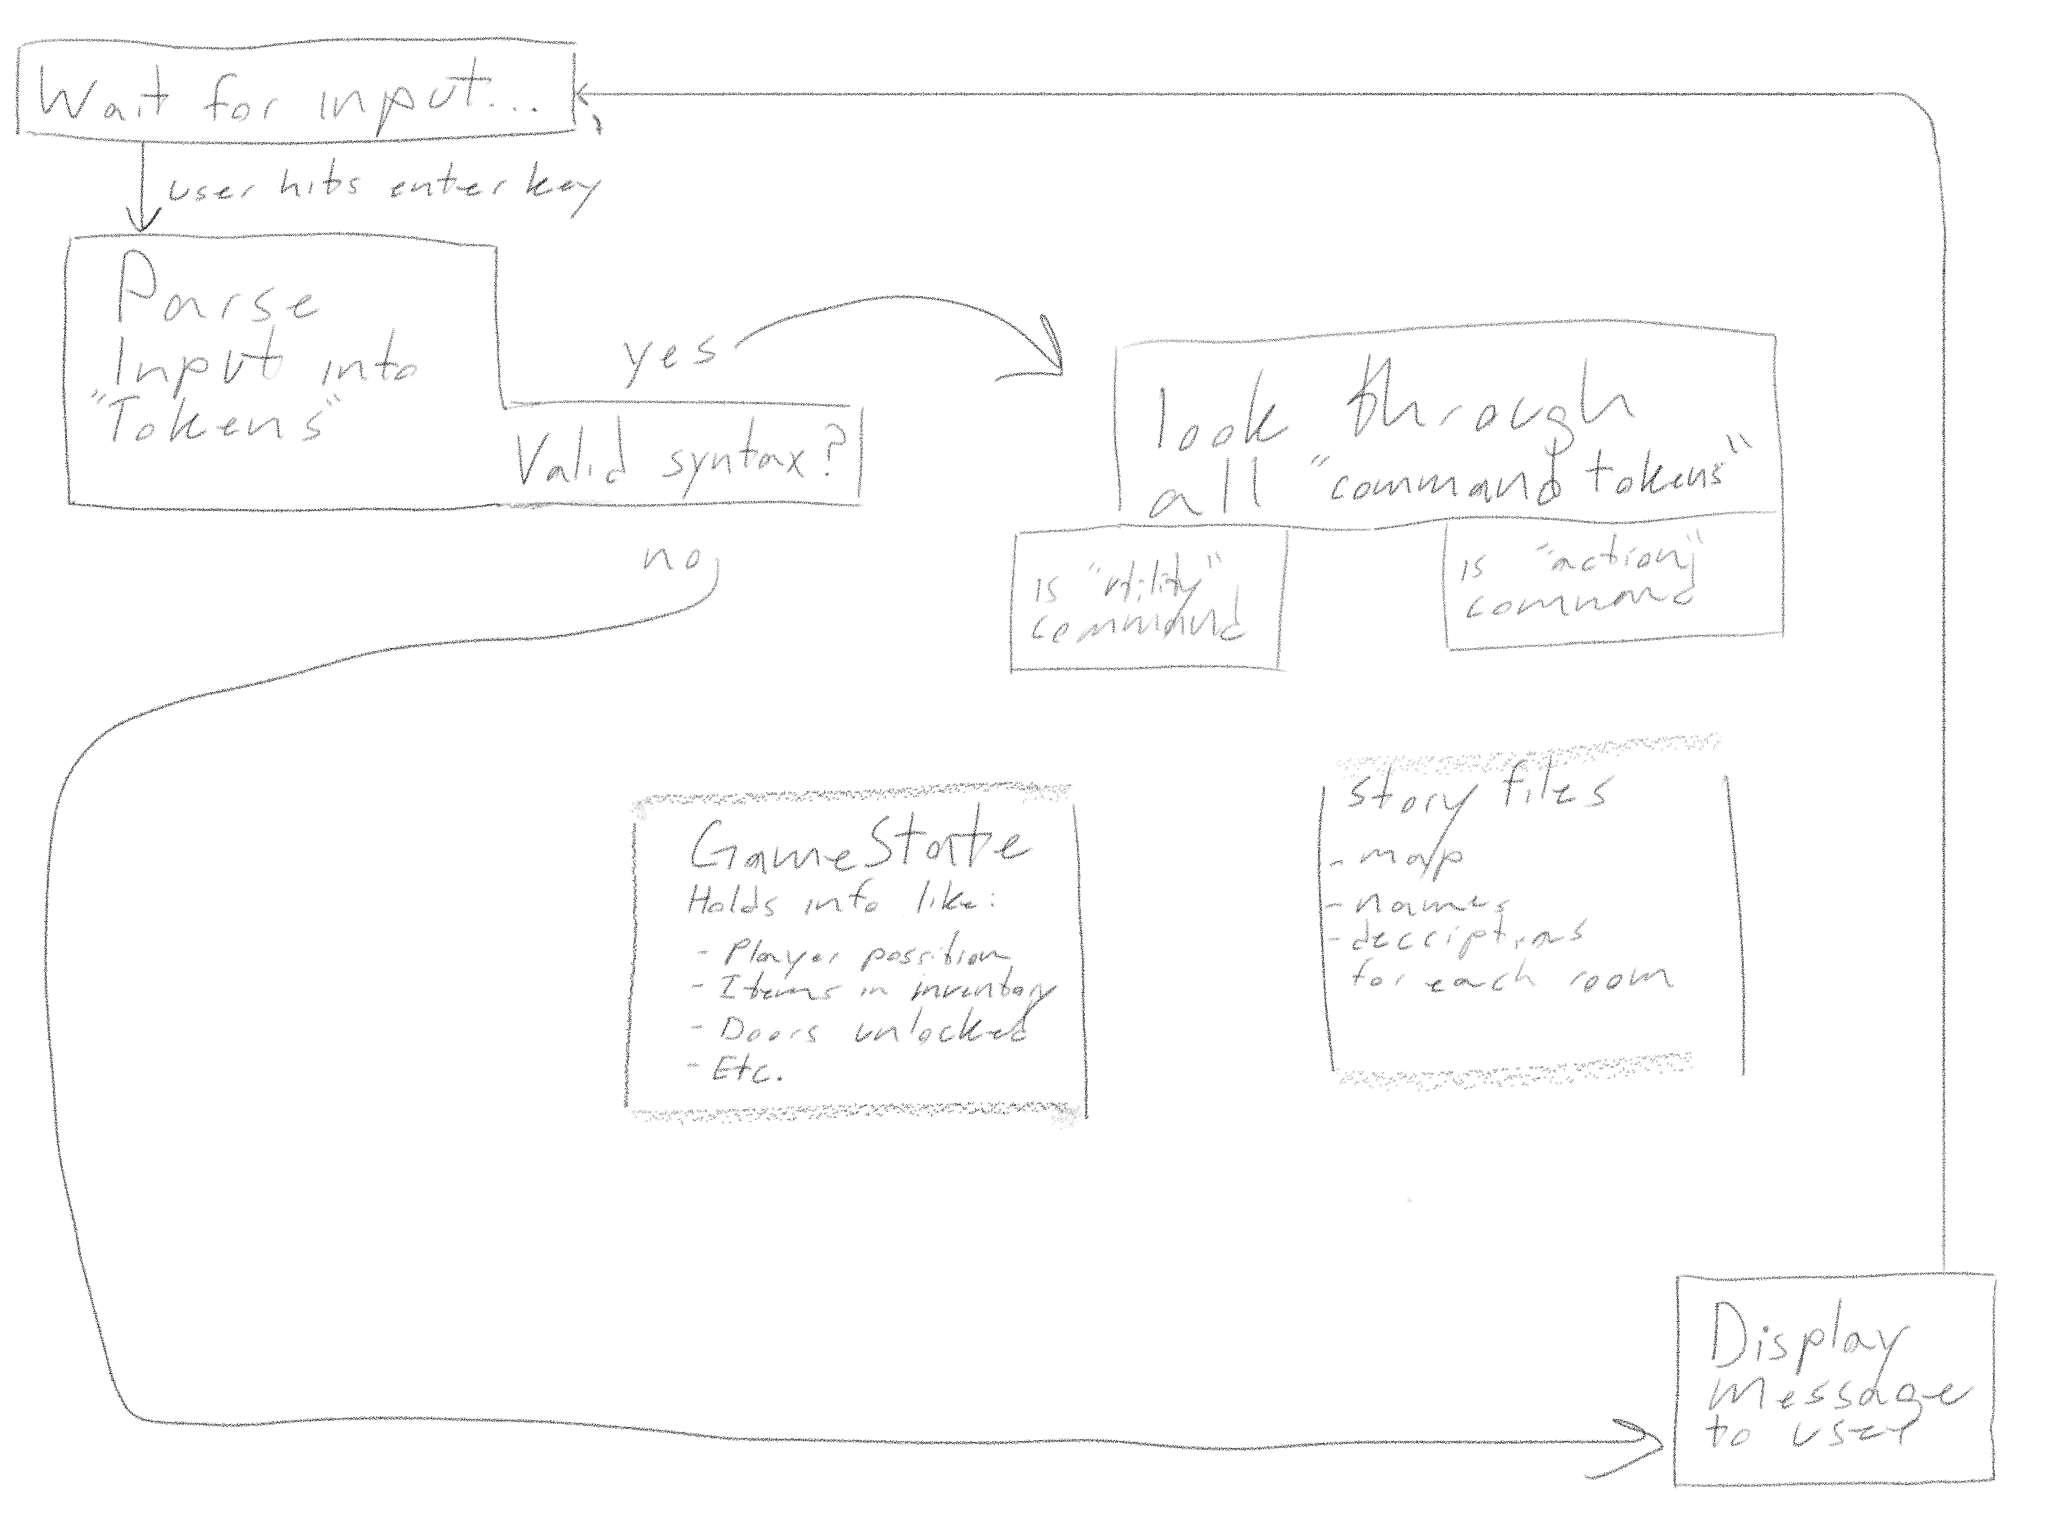 Wait for input...
user hits enter key
Parse
Input into
"Tokens"
Valid syntax?
yes
no
look through
all "command tokens"
is "utility"
command
is "action"
command
GameState
Holds info like:
- Player possition
- Items in inventory
- Doors unlocked
- Etc.
story files
- map
- names
- deccriptions
for each room
Display
Message
to user